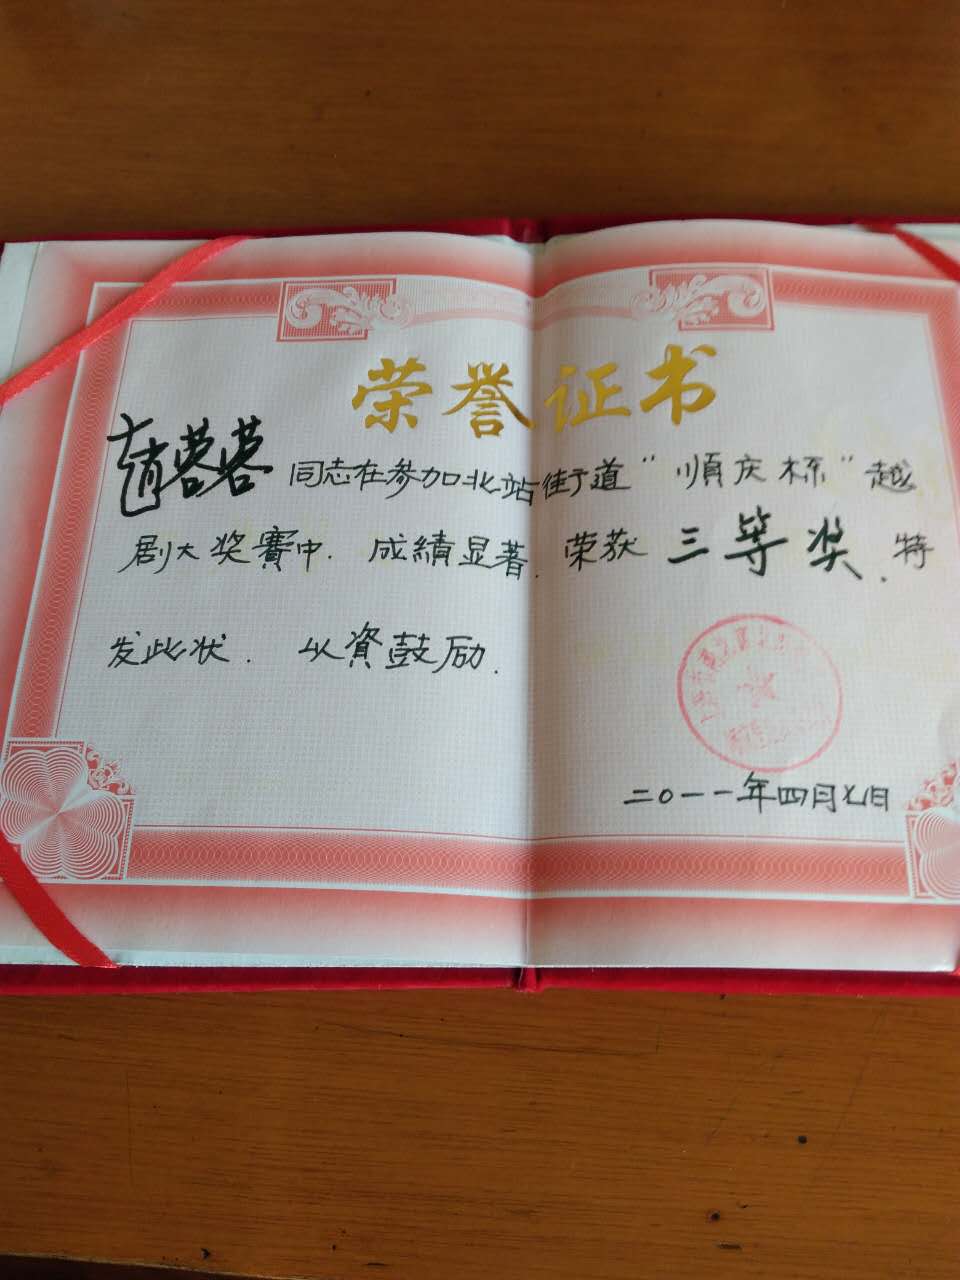 荣誉证书
趙蓉蓉 同志在参加北站街道“順庆杯”越
剧大奖賽中.成績显著.荣获 三等奖.特
发此状.以資鼓励.
二〇一一年四月七日